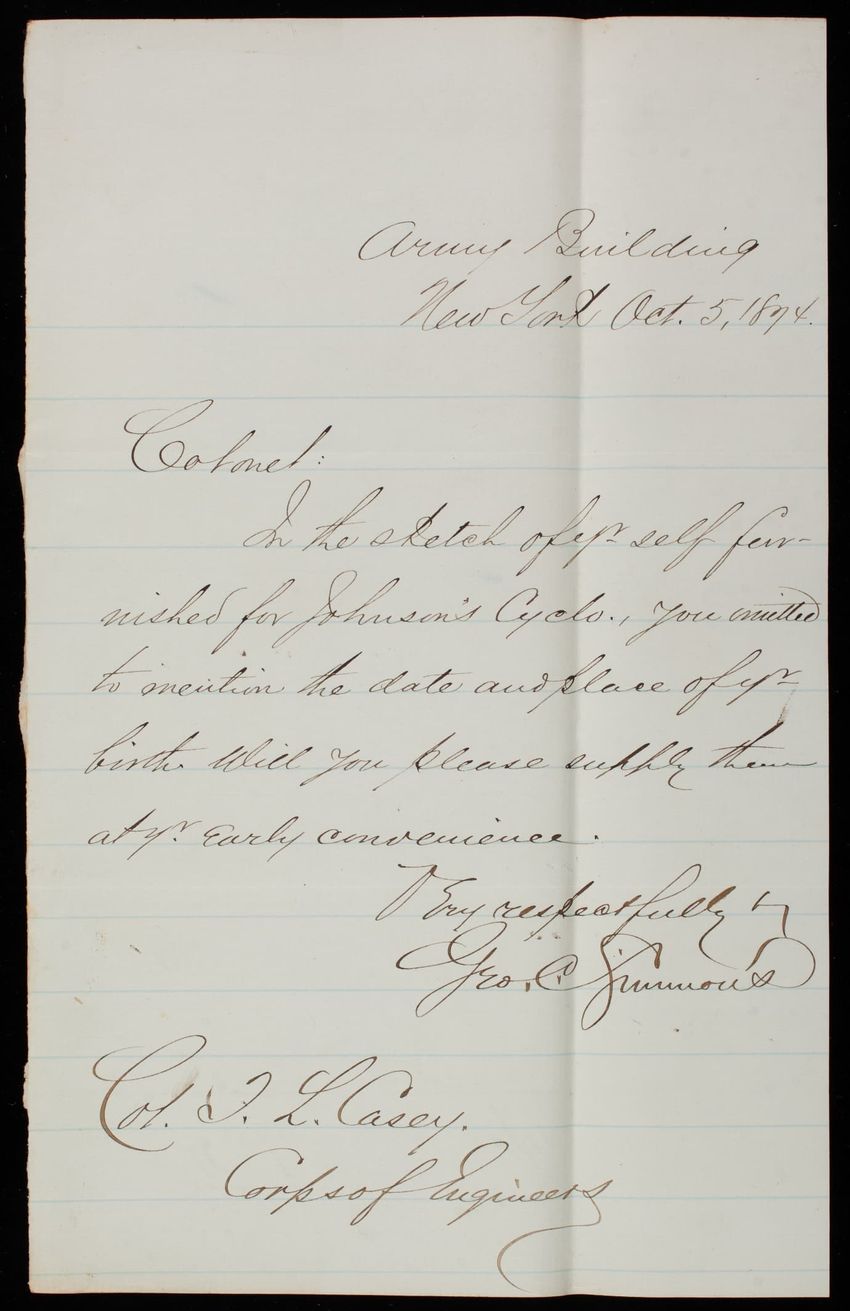 Army Building
New York Oct. 5, 1874.
Colonel:
In the sketch of yr self fur-
nished for Johnson's Cyclo., you omitted
to mention the date and place of yr
birth. Will you please supply them
at yr. early convenience.
Very respectfully
Geo. C. Simmons
Col. T. L. Casey.
Corps of Engineers